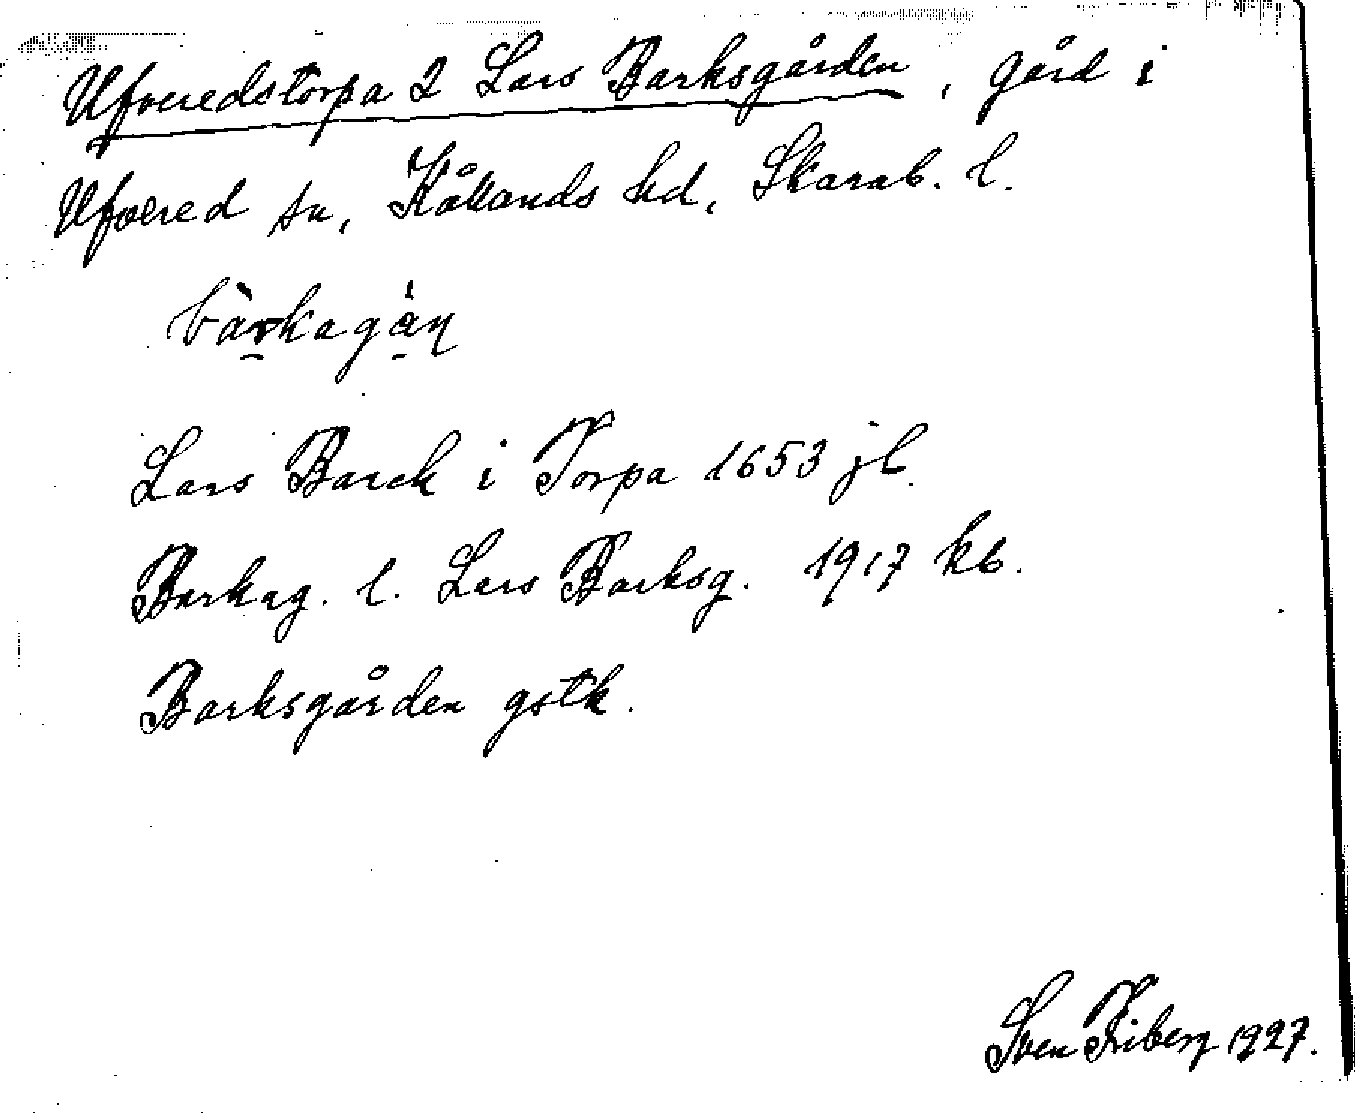 Ufveredstorpa 2 Lars Barksgården, gård i
Ufvered sn, Kållands hd, Skarab. l.
bàrkagån
Lars Barck i Torpa 1653 jb.
Barkag. l. Lars Barksg. 1917 kb.
Barksgården gstk.
Sven Friberg 1927.